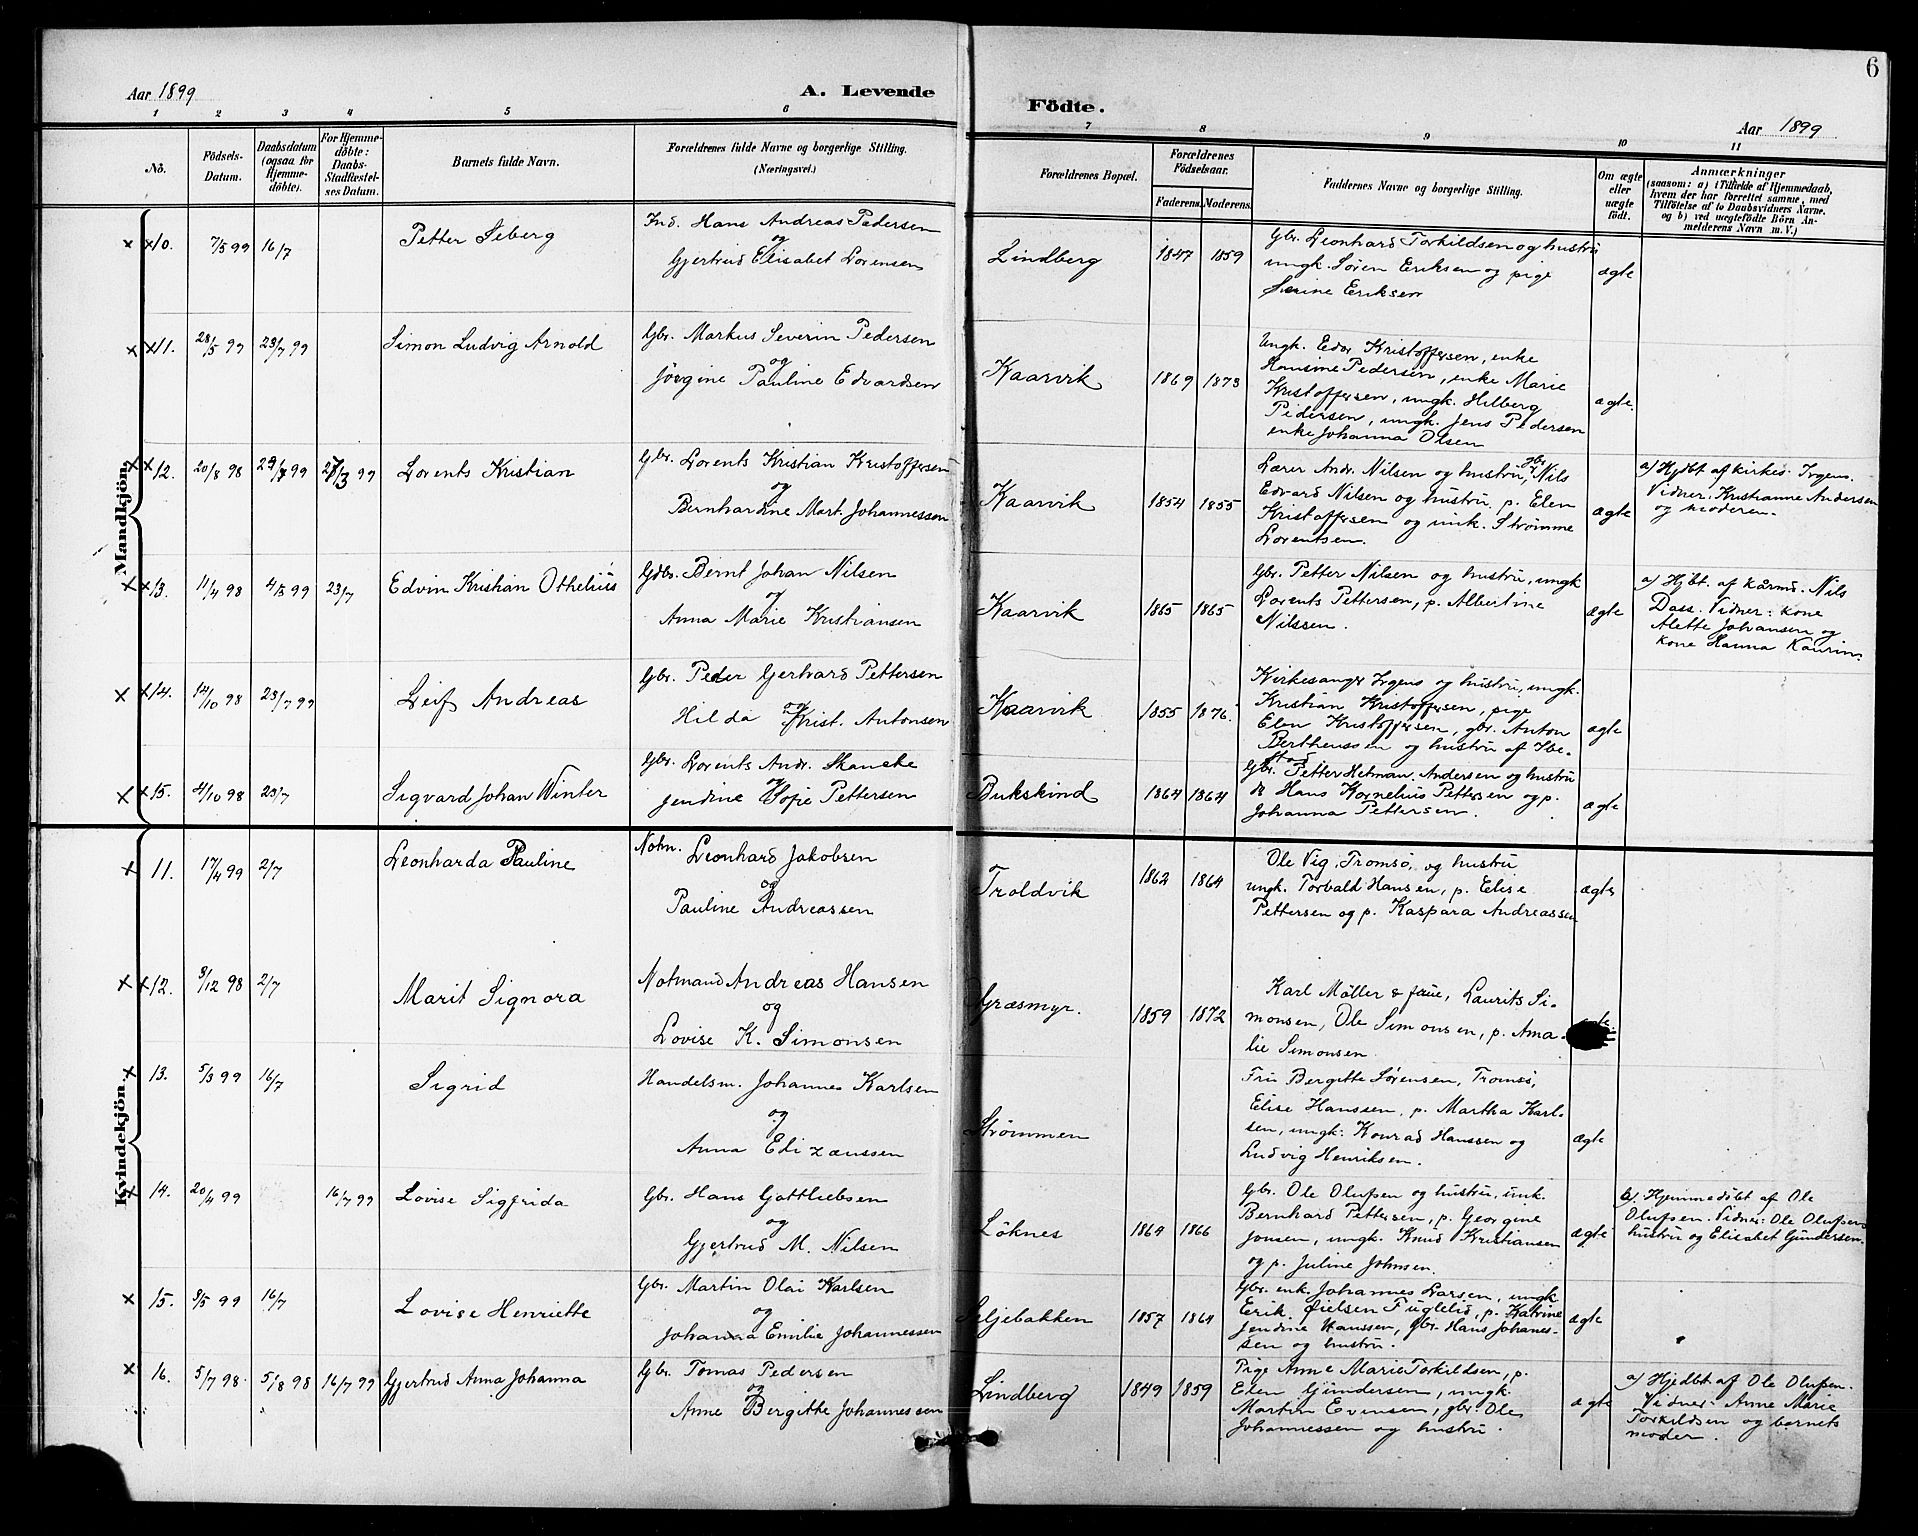 6
Aar 1899
A. Levende
Födte.
Aar 1899
1 2 3 4 5 6 7 8 9 10 11
No.
Födsels-
Datum.
Daabsdatum
(ogsaa for
Hjemme-
döbte).
For Hjemme-
döbte:
Daabs-
Stadfæstel-
ses Datum.
Barnets fulde Navn.
Forældrenes fulde Navne og borgerlige Stilling.
(Næringsvei.)
Forældrenes Bopæl.
Forældrenes
Födselsaar.
Faderens. Moderens.
Faddernes Navne og borgerlige Stilling.
Om ægte
eller
uægte
födt.
Anmærkninger
(saasom: a) i Tilfælde af Hjemmedaab,
hvem der har forrettet samme, med
Tilföielse af to Daabsvidners Navne,
og b) ved uegtefödte Börn An-
melderens Navn m. V.)
Mandkjön.
x x10. 7/5 99 16/7
Petter Seberg
Ind. Hans Andreas Pedersen
og
Gjertrud Elisabet Lorensen
Lindberg
1847 1859
Gbr. Leonhard Torkildsen og hustru
ungk. Søren Eriksen og pige
Serine Eriksen
ægte
x x11. 28/5 99 23/7 99
Simon Ludvig Arnold
Gbr. Markus Severin Pedersen
og
Jörgine Pauline Edvardsen
Kaarvik
1869 1873
Ungk. Edv. Kristoffersen, enke
Hansine Pedersen, enke Marie
Kristoffersen, ungk. Hilberg
Pedersen, ungk. Jens Pedersen
enke Johanna Olsen
ægte.
x x12. 20/8 98 23/7 99 27/3 99
Lorents Kristian
Gbr. Lorents Kristian Kristoffersen
og
Bernhardine Mart. Johannessen
Kaarvik
1854 1855
Lærer Andr. Nilsen og hustru, gbr. Nils
Edvard Nilsen og hustru p. Elen
Kristoffersen og unk. Strømme
Lorentsen.
ægte
a) Hjdbt af kirkes. Irgens.
Vidner: Kristianne Andersen
og moderen.
x x13. 11/4 98 4/5 99 23/7
Edvin Kristian Othelius
Gdbr. Bernt Johan Nilsen
og
Anna Marie Kristiansen
Kaarvik
1865 1865
Gbr. Petter Nilsen og hustru, ungk
Lorents Pettersen, p. Albertine
Nilssen.
ægte
a) Hjbt. af kårmd. Nils
Dass. Vidner: kone
Alette Johansen og
kone Hanna Kaurin.
x x14. 14/10 98 23/7 99
Leif Andreas
Gbr. Peder Gerhard Pettersen
og
Hilda Krist. Antonsen
Kaarvik
1855 1876.
Kirkesanger Irgens og hustru, ungk.
Kristian Kristoffersen, pige
Elen Kristoffersen, gbr. Anton
Bertheussen og hustru af Ibe-
stad
ægte
x x15. 4/10 98 23/7
Sigvard Johan Winter
Gbr. Lorents Andr. Skancke
og
Jendine Sofie Pettersen
Bukskind
1864 1864
Gbr. Petter Hetman Andersen og hustru
do Hans Kornelius Pettersen og p.
Johanna Pettersen.
ægte
Kvindekjön.
x 11. 17/4 99 2/7
Leonharda Pauline
Notm. Leonhard Jakobsen
og
Pauline Andreassen
Troldvik
1862 1864
Ole Vig, Tromsø, og hustru
ungk. Torbald Hansen, p. Elise
Pettersen og p. Kaspara Andreassen
ægte
x x12. 3/12 98 2/7
Marit Signora
Notmand Andreas Hansen
og
Lovise K. Simonsen
Græsmyr.
1859 1872
Karl Møller & frue, Laurits Si-
monsen, Ole Simonsen, p. Ama-
lie Simonsen
x 13. 5/3 99 16/7
Sigrid
Handelsm. Johannes Karlsen
og
Anna Edizaussen
Strømmen
Fru Bergitte Sørensen, Tromsø,
Elise Hanssen, p. Martha Karl-
sen, ungk: Konrad Hanssen og
Ludvig Henriksen.
ægte
x 14. 20/4 99 16/7 99
Lovise Sigfrida
Gbr. Hans Gottliebsen
og
Gjertrud M. Nilsen
Löknes
1864 1866
Gbr. Ole Olufsen og hustru, unk.
Bernhard Pettersen, p. Georgine
Jonsen, ungk. Knud Kristiansen
og p. Juline Johnsen.
ægte
a) Hjemmedöbt af Ole
Olufsen. Vidner: Ole Olufsens
hustru og Elisabet Gundersen.
x 15. 3/5 99 16/7
Lovise Henriette
Gbr. Martin Olai Karlsen
og
Johanna Emilie Johannessen
Seljebakken
1857 1864
Gbr. enk. Johannes Larsen, ungk
Erik Øielsen Fuglelid, p. Katrine
Jendine Hanssen, gbr. Hans Johanes-
sen og hustru.
ægte
x 16. 5/7 98. 5/8 98 16/7 99
Gjertrud Anna Johanna
Gbr. Tomas Pedersen
og
Anne Bergitte Johannessen
Lindberg
1849 1859
Pige Anne Marie Torkildsen, p.
Elen Gundersen, ungk.
Martin Evensen, gbr. Ole
Johannessen og hustru.
ægte
a) Hjedbt af Ole Olufsen.
Vidner: Anne Marie
Torkildsen og barnets
moder.